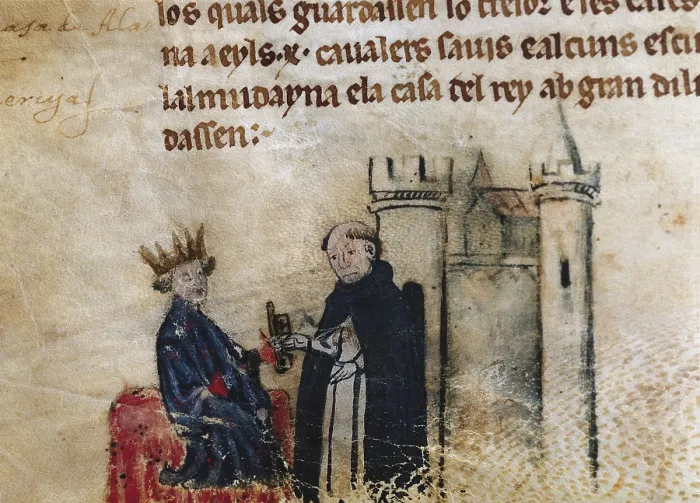 los quals guardassen lo tresor e les
na aeyls·x· caualers sauis ealcuns escu
lalmudayna ela casa del rey ab gran dili
dassen:~
casa de